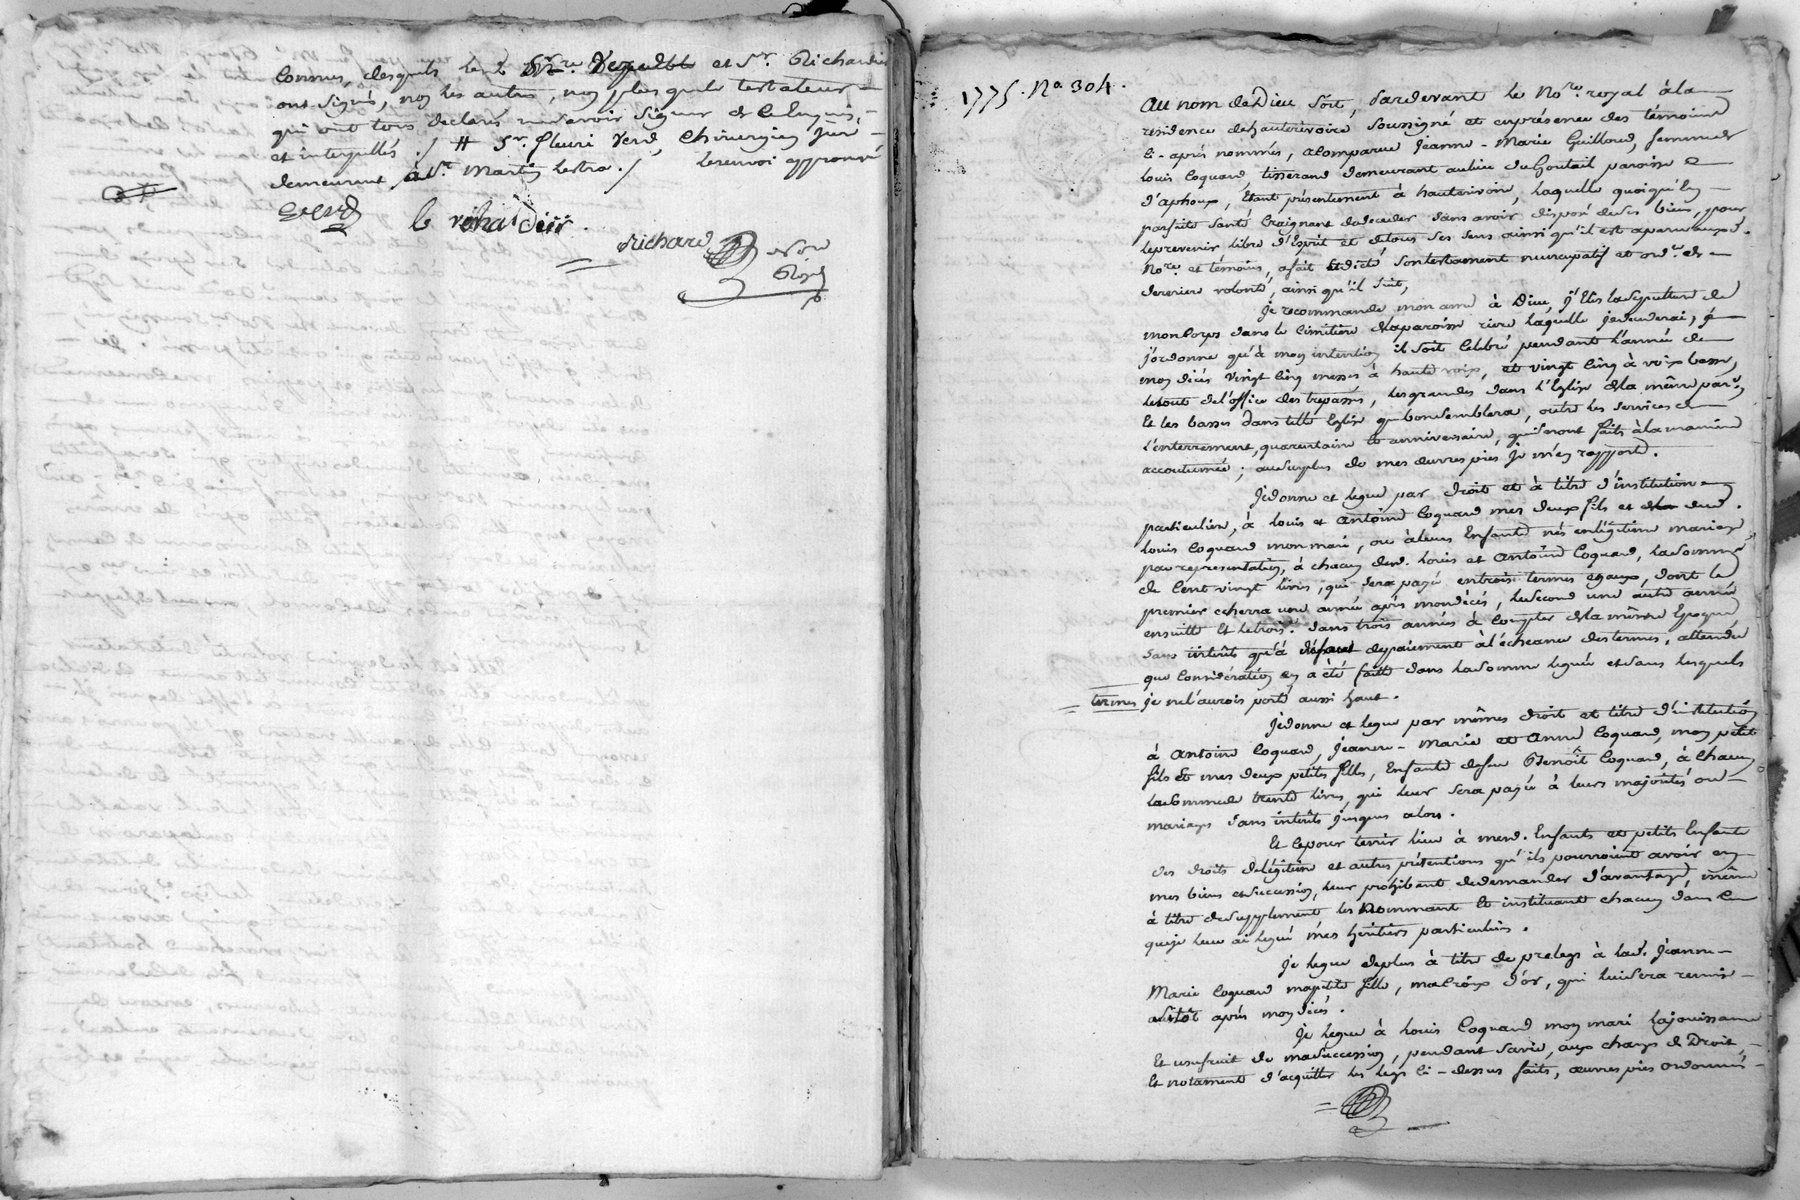 Connus, desquels le d. et Sr. Richardier
ont signés, non les autres, non plus que le testateur
qui ont tous declarés ne scavoir signer de ce enquis,
et interpellés ./ # Sr. fleuri Verd, Chirurgien juré
demeurant à St. Martin lestra ./ le renvoi approuvé
le richardier
Richard Nore
Royal
1775. No. 304.
Au nom de Dieu soit, Pardevant le Nore. royal à la
residence de hauterivoire soussigné et en présence des témoins
ci-après nommés, a comparu Jeanne-Marie Guilloud, femme de
Louis Coquard, tisserand demeurant au lieu du Goutail paroisse
d'aphoux, étant présentement à hauterivoire, Laquelle quoiqu'en
parfaite santé craignant de deceder sans avoir disposé de ses biens, pour
le prevenir libre d'Esprit et de tous ses sens ainsi qu'il est apparu auxd.
Nore. et témoins, a fait et dicté son testament nuncupatif et ordre. de
derniere volonté, ainsi qu'il suit,
Je recommande mon ame à Dieu, j'Elis la sepulture de
mon Corps dans le cimitière de la paroisse riere laquelle je decederai, &
j'ordonne qu'à mon intention il soit celebré pendant l'année de
mon décés vingt cinq messes à haute voix, et vingt cinq à voix basse,
le tout de l'office des trepassés, les grandes dans l'Eglise de la même parse,
Et les basses dans telle Eglise que bon semblera, outre les services de
l'enterrement, quarantaine et anniversaire, qui seront faits à la maniere
accoutumée; au surplus de mes œuvres pies je m'en rapporte.
Je donne et legue par droit et à titre d'institution
particuliere, à Louis et Antoine Coquard mes deux fils et dud.
Louis Coquard mon mari, ou à leurs Enfants nés en légitime mariage
par représentation, à chacun desd. Louis et Antoine Coquard, la somme
de Cent vingt livres, qui sera payée en trois termes egaux, dont le
premier echerra une année après mon décés, le second une autre année
ensuitte et le trois. dans trois années à compter de la même Epoque
sans intérêts qu'à défaut de paiement à l'échéance des termes, attendu
que considération en a été faitte dans la somme leguée et sans lesquels
termes je ne l'aurois porté aussi haut.
Je donne et legue par mêmes droit et titre d'institution
à Antoine Coquard, Jeanne-Marie et Anne Coquard, mon petit
fils Et mes deux petites filles, Enfants de feu Benoît Coquard, à chacun
la somme de trente livres, qui leur sera payée à leurs majorités ou
mariage sans intérêts jusques alors.
Et ce pour tenir lieu à mesd. Enfants et petits Enfants
des droits de légitime et autres prétentions qu'ils pourroient avoir en
mes biens et succession, leur prohibant de demander d'avantage, même
à titre de supplement les Nommant et instituant chacun dans ce
que je leur ai legué mes héritiers particuliers.
Je legue de plus à titre de prelegs à lad. Jeanne-
Marie Coquard ma petite fille, ma Croix d'or, qui lui sera remise
aussitôt après mon décés.
Je legue à Louis Coquard mon mari la jouissance
Et usufruit de ma succession, pendant sa vie, aux charges de Droit,
Et notament d'acquitter les legs ci-dessus faits, œuvres pies ordonnées